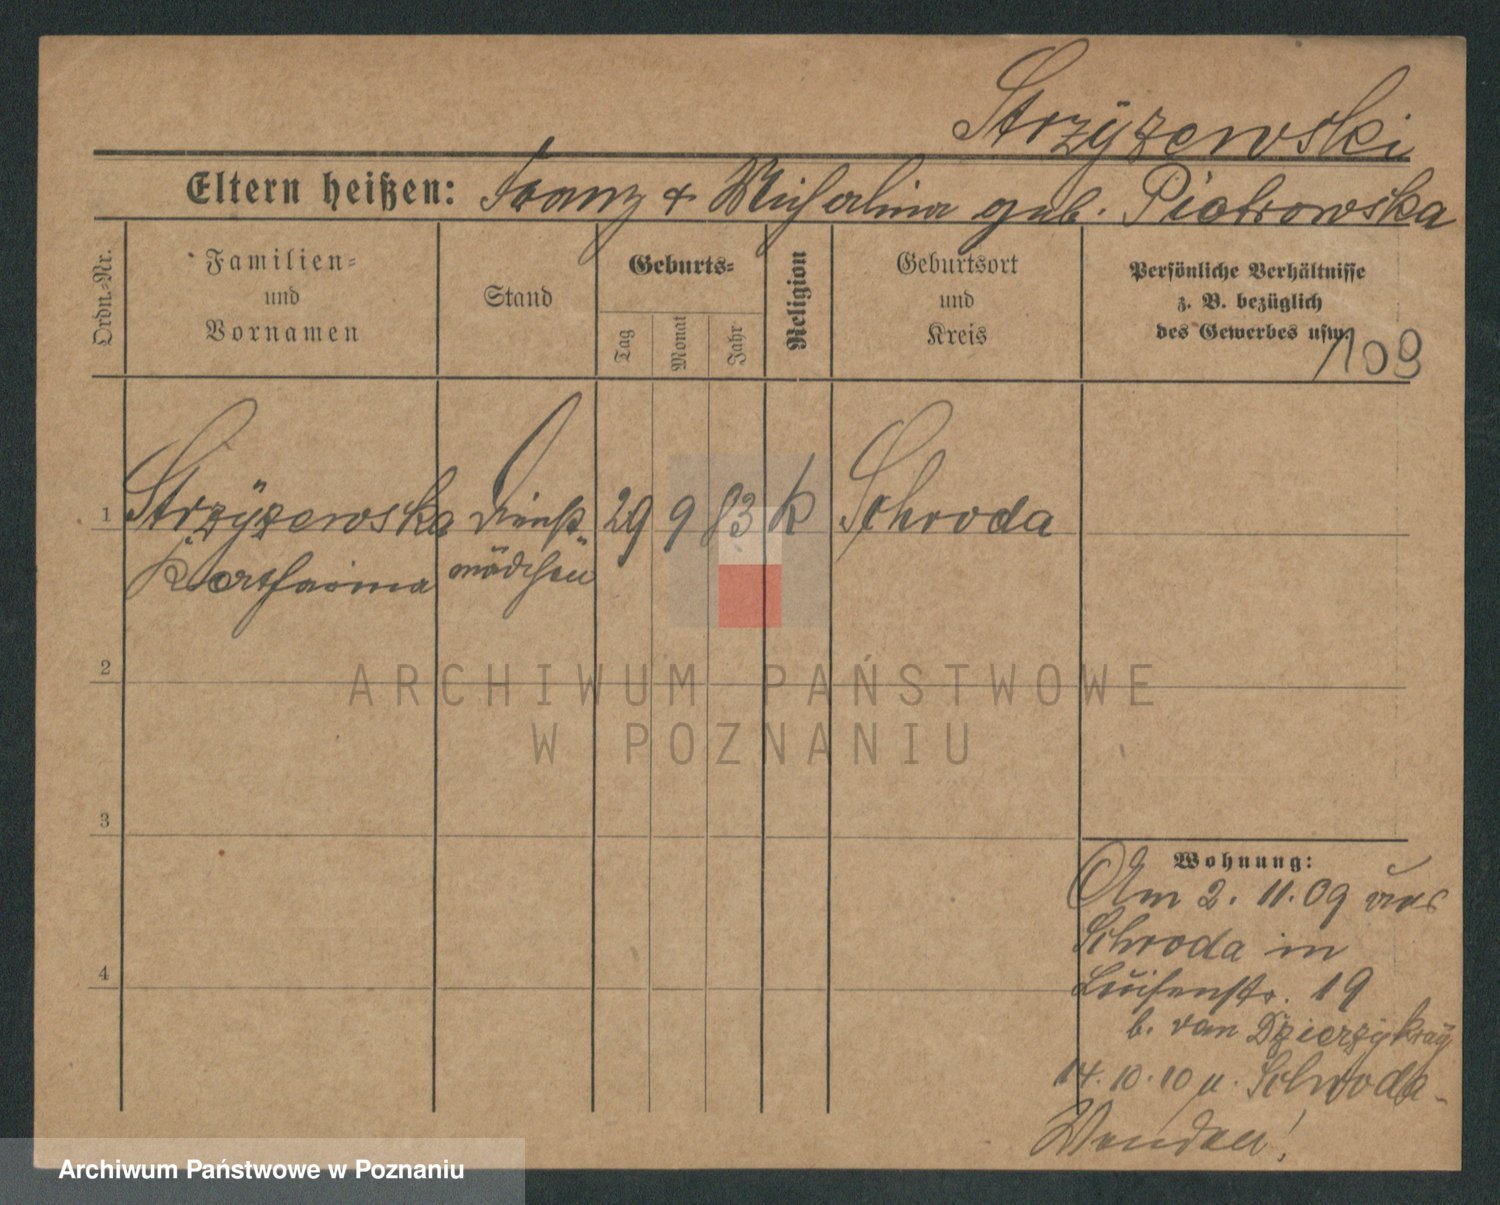 Strzÿzewski
Eltern heißen: Franz & Michalina geb. Piotrowska
Ordn.-Nr.
Familien-
und
Vornamen
Stand
Geburts-
Tag
Monat
Jahr
Religion
Geburtsort
und
Kreis
Persönliche Verhältnisse
z. B. bezüglich
des Gewerbes usw.
1109
1 Strzÿzewska Dienst- 29 9 83 k Schroda
Katharina mädchen
2
3
4
Wohnung:
Am 2. 11. 09 aus
Schroda in
Luisenstr. 19
b. von Dzierzykraÿ
14. 10. 10 n. Schroda-
ARCHIWUM PAŃSTWOWE
W POZNANIU
Archiwum Państwowe w Poznaniu